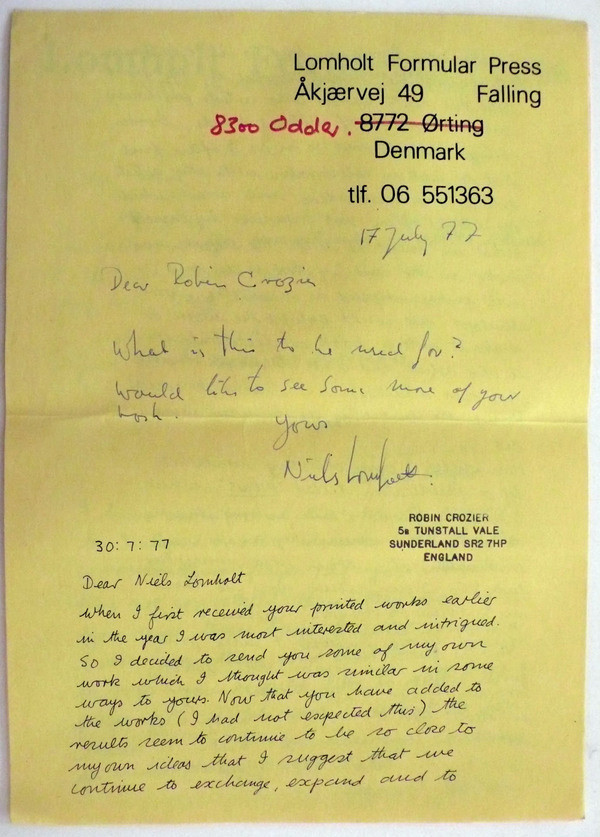 Lomholt Formular Press
Åkjærvej 49 Falling
8300 Odder. 8772 Ørting
Denmark
tlf. 06 551363
17 July 77
Dear Robin Crozier
What is this to be used for?
Would like to see some more of your
work.
Yours
Niels Lomholt.
ROBIN CROZIER
5B TUNSTALL VALE
SUNDERLAND SR2 7HP
ENGLAND
30:7:77
Dear Niels Lomholt
When I first received your printed works earlier
in the year I was most interested and intrigued.
So I decided to send you some of my own
work which I thought was similar in some
ways to yours. Now that you have added to
the works (I had not expected this) the
results seem to continue to be so close to
my own ideas that I suggest that we
continue to exchange, expand and to